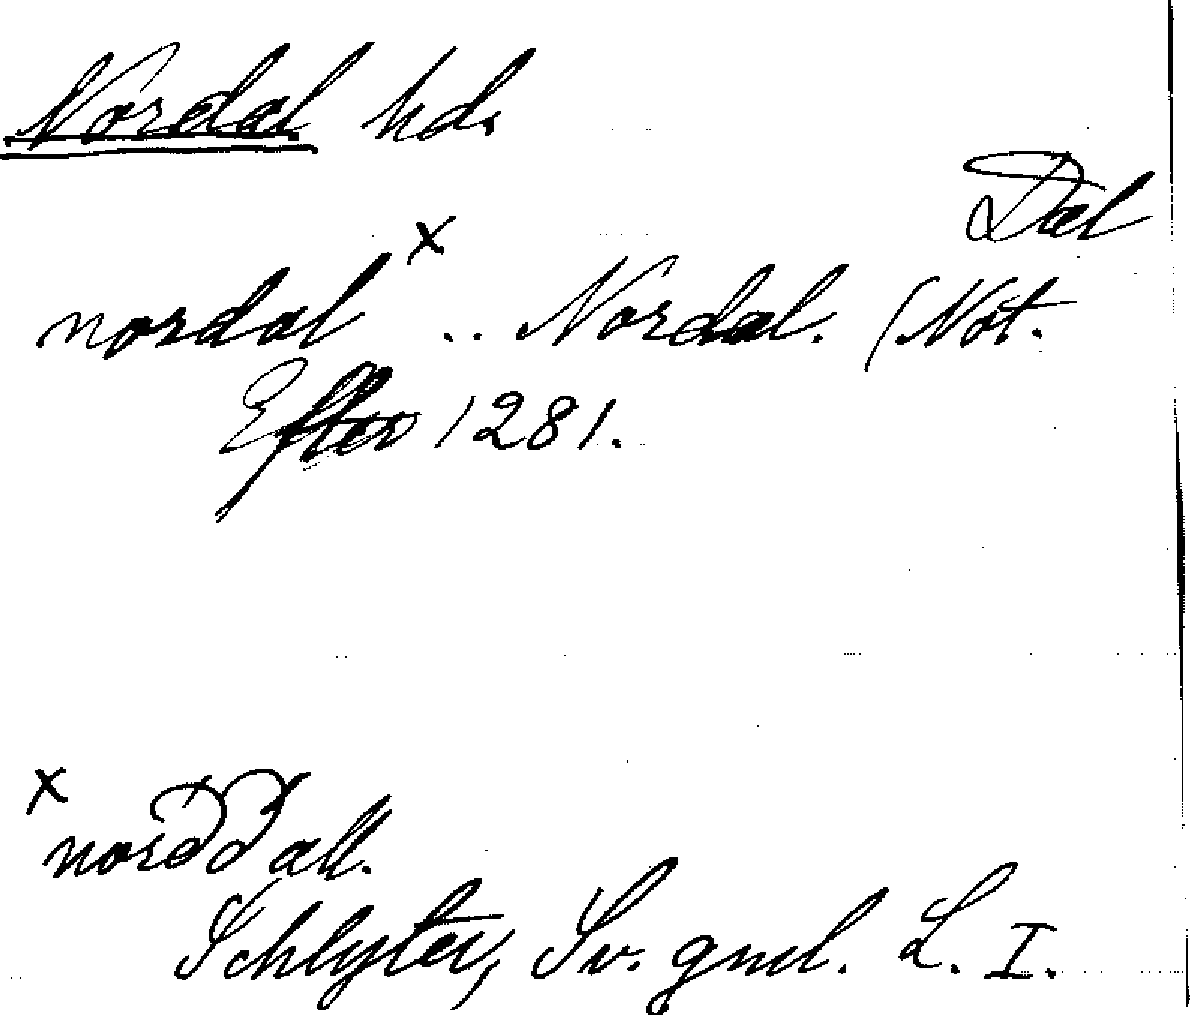 Nordal hd.
Dal
nordal x .. Nordal. (Not.
Efter 1281.
x norððall.
Schlyter, Sv. gml. L. I.